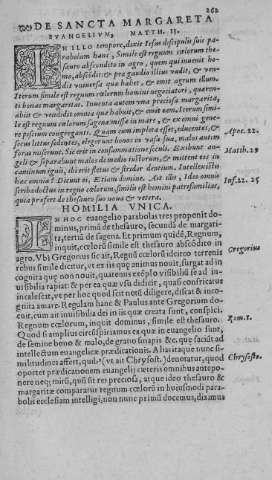 262
DE SANCTA MARGARETA
EVANGELIVM, MATTH. 13.
IN ILLO tempore, dixit Iesus discipulis suis parabolam
hanc, Simile est regnum cœlorum thesauro
abscondito in agro, quem qui inuenit homo,
abscōdit: & præ gaudio illius vadit, & vendit
vniuersa quæ habet, & emit agrum illum.
Iterum simile est regnum cœlorum homini negociatori, quærenti
bonas margaritas. Inuenta autem vna preciosa margarita,
abiit & vendidit omnia quæ habuit, & emit eam. Iterum simile
est regnum cœlorum sagenæ missæ in mare, & ex omni genere
piscium congreganti. Quam cum impleta esset, educentes, &
secus littus sedentes, elegerunt bonos in vasa sua, malos autem
foras miserunt. Sic erit in consummatione seculi. Exibunt angeli
& separabunt malos de medio iustorum, & mittent eos in
caminum ignis, ibi erit fletus & stridor dentium. Intellexistis
hæc omnia? Dicunt ei, Etiam domine. Ait illis, Ideo omnis
scriba doctus in regno cœlorum, similis est homini patrifamilias,
qui profert de thesauro suo noua & vetera.
Apoc. 22.
Matth. 25
Inf. 22. 25
HOMILIA VNICA.
IN HOC euangelio parabolas tres proponit dominus,
prima de thesauro, secunda de margarita,
tertia de sagena. Et primum quidē, Regnum,
inquit, cœlorū simile est thesauro abscōdito in
agro. Vbi Gregorius sic ait, Regnū cœlorū ideirco terrenis
rebus simile dicitur, vt ex iis quæ animus nouit, surgat ad incognita
quæ non nouit, quatenus exēplo visibiliū se ad inuisibilia
rapiat: & per ea quæ vsu didicit, quasi confricatus
incalescat, vt per hoc quod scit notū diligere, discat & incognita
amare. Regulam hanc & Paulus ante Gregorium dedit,
cum ait inuisibilia dei in iis quæ creata sunt, conspici.
Regnum cœlorum, inquit dominus, simile est thesauro.
Quod si amplius circūspiciamus ea quæ in euangelio sunt,
de semine bono & malo, de grano sinapis &c. quæ faciūt ad
intellectum euangelicæ prædicationis. A hac itaque nunc similitudines
affert, quib. (vt ait Chrysost.) denotatur, quod
oportet prædicationem euangelij cæteris omnibus anteponere
neq; nisi, quia sit res preciosa, atque ideo thesauro &
margaritæ comparatur regnum cœlorū in huiusmodi parabolis
ecclesiam intelligi, non nunc primū docemus, diximus
Gregorius
Rom. 1.
Chrysost.